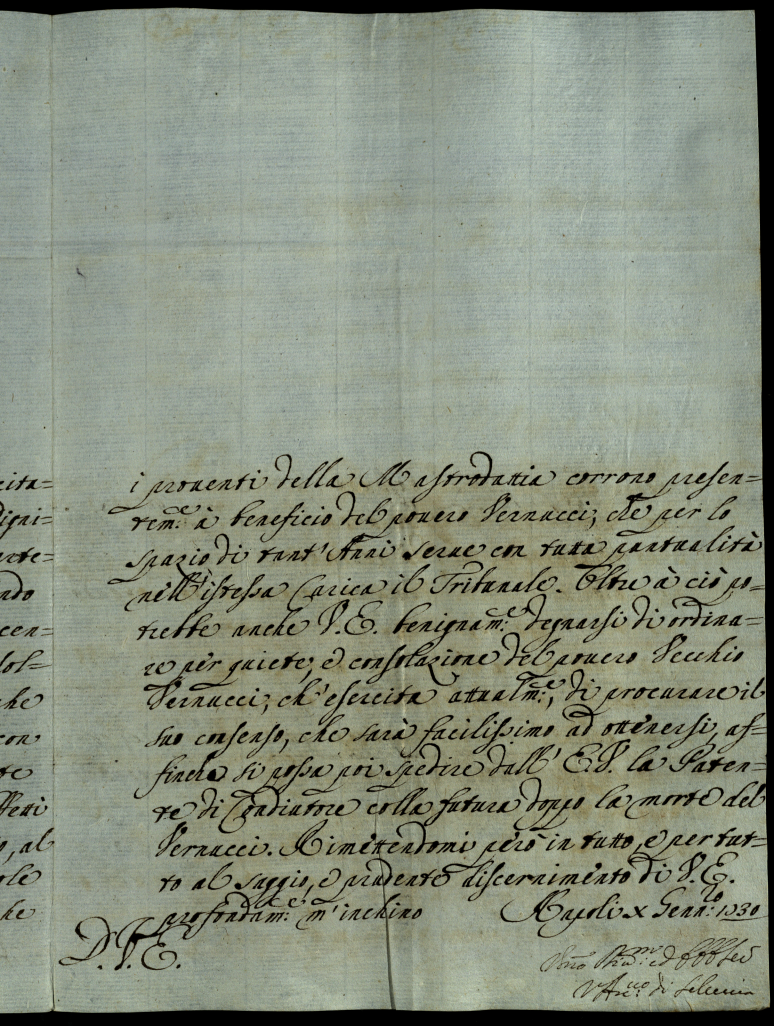 cita=
digni=
arte=
ndo
cen=
dol=
che
con
te
ffetti
o, al
ole
he
i prouenti della Mastrodattia corrono presen=
tem.e à beneficio del pouero Vernucci, che per lo
spazio di tant' Anni serue con tutta pontualità
nell' istessa Carica il Tribunale. Oltre à ciò po=
trebbe anche V. E. benignam.e degnarsi di ordina=
re per quiete, e consolazione del pouero Vecchio
Vernucci, ch' esercita attualm.e, di procurare il
suo consenso, che sarà facilissimo ad ottenersi, af=
finche si possa poi spedire dall' E. V. la Paten=
te di Coadiutore colla futura doppo la morte del
Vernucci. Rimettendomi però in tutto, e per tut=
to al saggio, e prudente discernimento di V. E.
profondam.e m' inchino Napoli x Genn.ro 1730
D. V. E.
ed
di